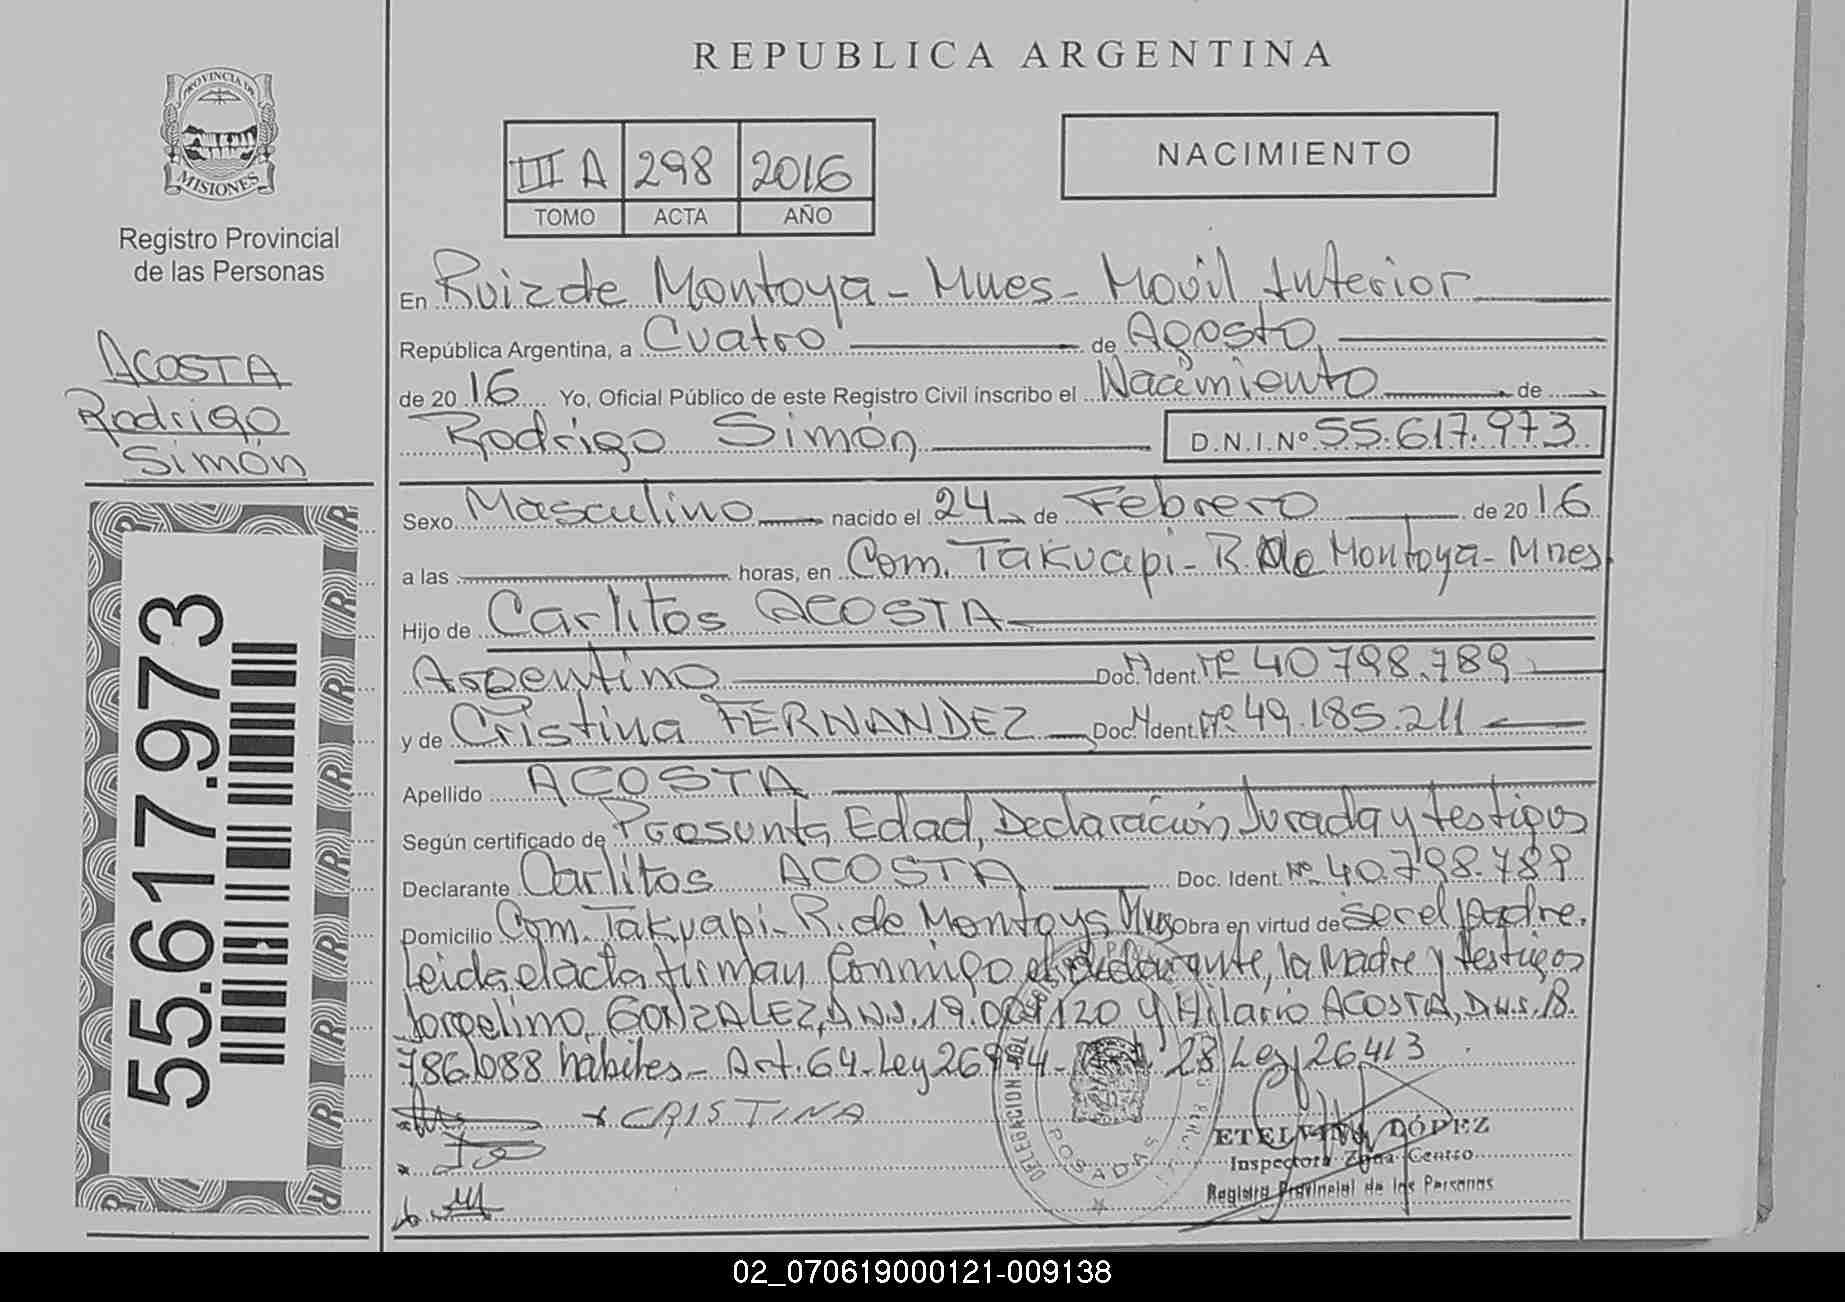 REPUBLICA ARGENTINA
PROVINCIA DE
MISIONES
Registro Provincial
de las Personas
III A 298 2016
TOMO ACTA AÑO
NACIMIENTO
ACOSTA
Rodrigo
Simón
55.617.973
En Ruiz de Montoya - Mnes - Movil Interior
República Argentina, a Cuatro de Agosto
de 20 16 Yo, Oficial Público de este Registro Civil inscribo el Nacimiento de
Rodrigo Simón D.N.I.Nº 55.617.973
Sexo Masculino nacido el 24 de Febrero de 20 16
a las horas, en Com. Takuapi - R. de Montoya - Mnes
Hijo de Carlitos ACOSTA
Argentino Doc. Ident. Nº 40.798.789
y de Cristina FERNANDEZ Doc. Ident. Nº 49.185.211
Apellido ACOSTA
Según certificado de Presunta Edad, Declaración Jurada y testigos
Declarante Carlitos ACOSTA Doc. Ident. Nº 40.798.789
Domicilio Com. Takuapi - R. de Montoya Mnes Obra en virtud de ser el padre.
Leida el acta firman conmigo el declarante, la Madre y testigos
Jorgelino GONZALEZ, D.N.I. 19.001.120 y Hilario ACOSTA, D.N.I. 18.
786.088 habiles - Art. 64 - Ley 26994 - 28 Ley 26413
x CRISTINA
DELEGACION DEL
POSADAS
ETELVINA LÓPEZ
Inspectora Zona Centro
Registro Provincial de las Personas
02_070619000121-009138